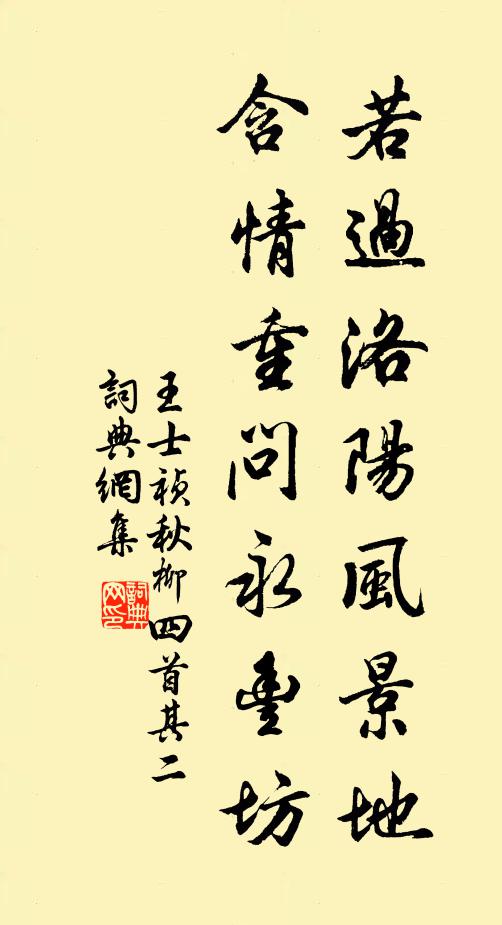 若過洛陽風景地
含情重問永豐坊
王士禎秋柳四首其二
詞典網集
詞典網印